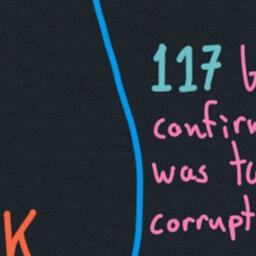 117
confir
was t
corrupt
K